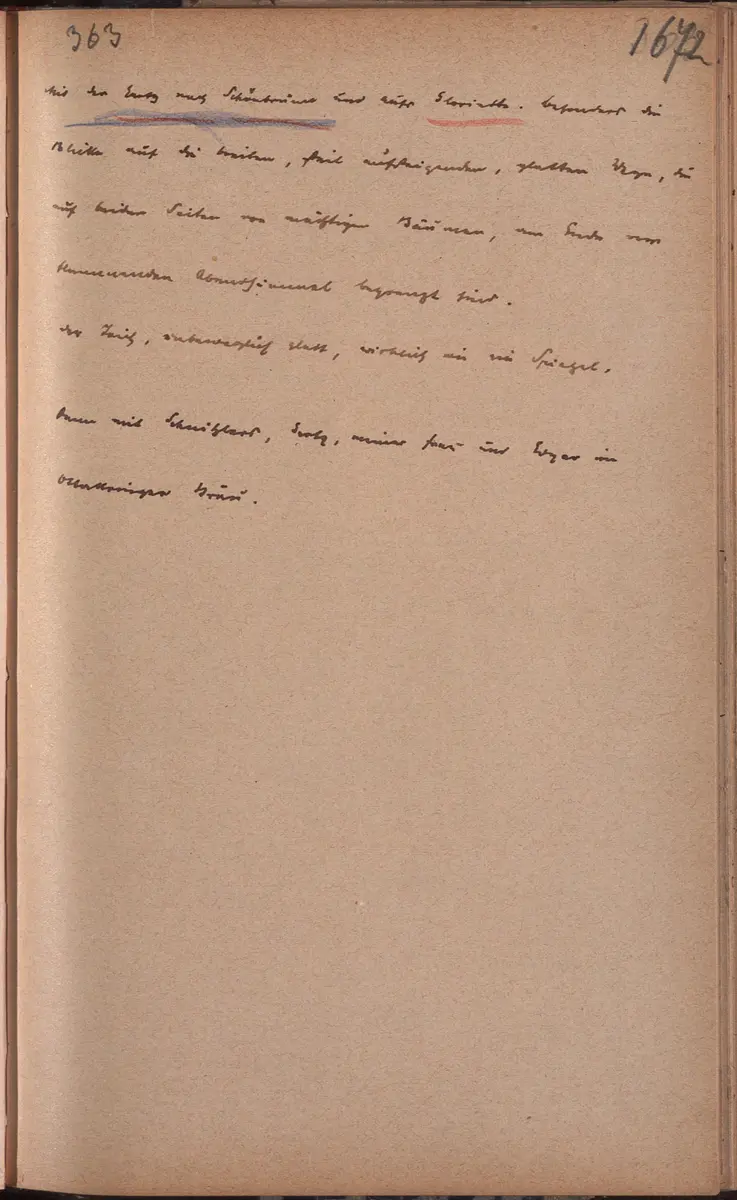 363
1672
Mit der Gertz nach Schönbrunn und aufs Gloriette. Besonders die
Blicke auf die breiten, steil aufsteigenden, glatten Wege, die
auf beiden Seiten von mächtigen Bäumen, am Ende vom
flammenden Abendhimmel begrenzt sind.
der Teich, unbeweglich glatt, wirklich wie ein Spiegel.
Dann mit Schnitzlers, meiner Frau und Edgar im
Ottakringer Bräu.